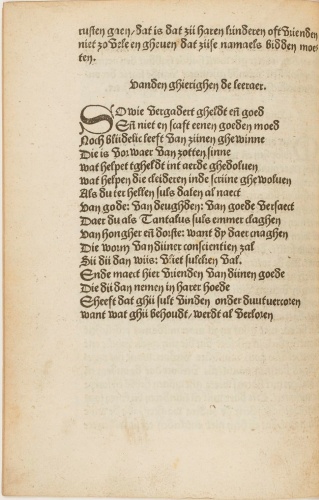 rusten gaen/dat is dat zii haren kinderen oft vrienden
niet zo vele en gheven dat ziise namaels bidden moe-
ten.
Vanden ghierighen de leeraer.
SO wie vergadert gheldt eñ goed
Eñ niet en scaft eenen goeden moed
Noch blidelic leeft van ziinen ghewinne
Die is voorwaer van zotten sinne
wat helpet tgheldt int aerde ghedolven
wat helpen die cleideren inde scriine ghewolven
Als du ter hellen suls dalen al naect
van gode: van deughden: van goede versaect
Daer du als Tantalus suls emmer claghen
van hongher eñ dorste: want dp daer cnaghen
Die worm van diiner conscientien zal
Sii dii dan wiis: vliet sulcken val.
Ende maect hier vrienden van diinen goede
Die dii dan nemen in harer hoede
Gheeft dat ghii sult vinden onder duutvercoren
want wat ghii behoudt/werdt al verloren